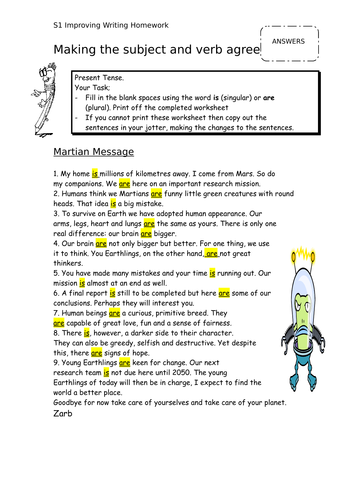 S1 Improving Writing Homework
ANSWERS
Making the subject and verb agree
Present Tense.
Your Task;
- Fill in the blank spaces using the word is (singular) or are
(plural). Print off the completed worksheet
- If you cannot print these worksheet then copy out the
sentences in your jotter, making the changes to the sentences.
Martian Message
1. My home is millions of kilometres away. I come from Mars. So do
my companions. We are here on an important research mission.
2. Humans think we Martians are funny little green creatures with round
heads. That idea is a big mistake.
3. To survive on Earth we have adopted human appearance. Our
arms, legs, heart and lungs are the same as yours. There is only one
real difference: our brain are bigger.
4. Our brain are not only bigger but better. For one thing, we use
it to think. You Earthlings, on the other hand, are not great
thinkers.
5. You have made many mistakes and your time is running out. Our
mission is almost at an end as well.
6. A final report is still to be completed but here are some of our
conclusions. Perhaps they will interest you.
7. Human beings are a curious, primitive breed. They
are capable of great love, fun and a sense of fairness.
8. There is, however, a darker side to their character.
They can also be greedy, selfish and destructive. Yet despite
this, there are signs of hope.
9. Young Earthlings are keen for change. Our next
research team is not due here until 2050. The young
Earthlings of today will then be in charge, I expect to find the
world a better place.
Goodbye for now take care of yourselves and take care of your planet.
Zarb